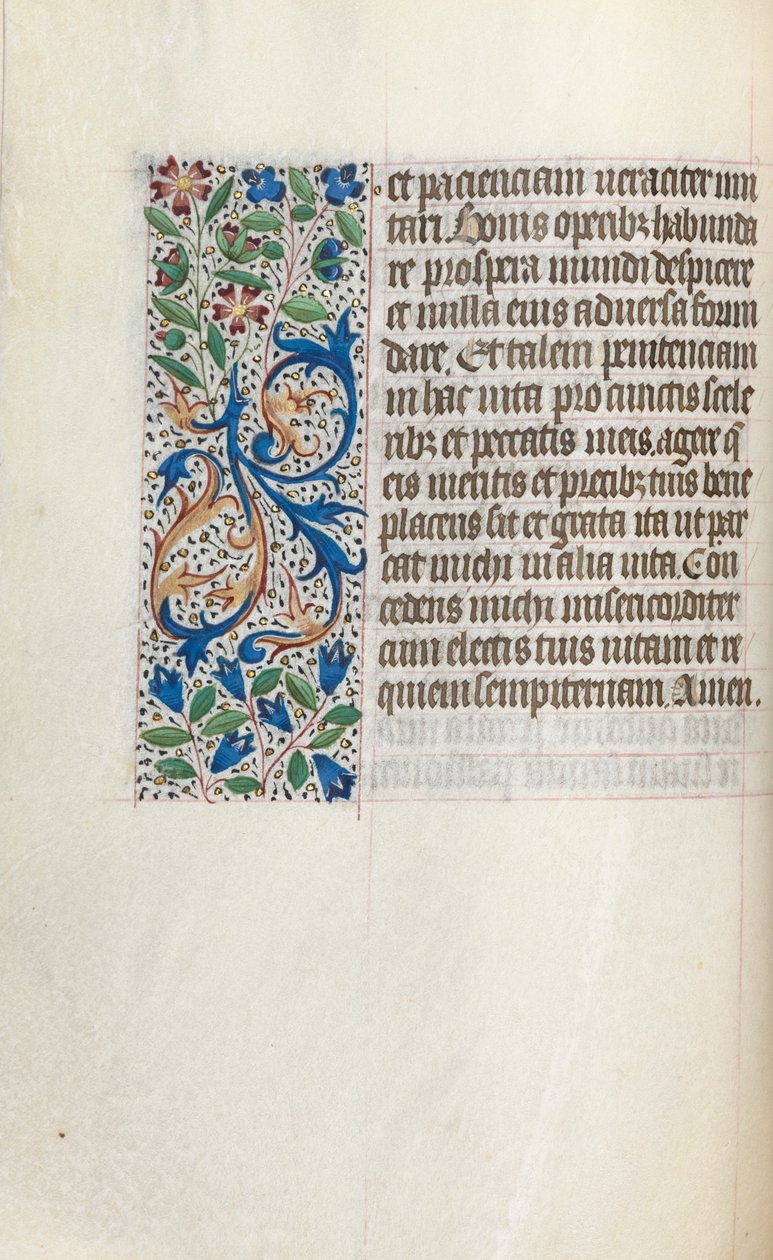 et pacienciam ueraciter imi
tari. Bonis operibꝫ habunda
re prospera mundi despicere
et nulla eius aduersa formi
dare. Et talem penitenciam
in hac uita pro cunctis scele
ribꝫ et peccatis meis. agere q̃
eis meritis et precibꝫ tuis bene
placens sit et grata ita ut par
cat michi in alia uita. Con
cedens michi misericorditer
cum electis tuis uitam et re
quiem sempiternam. Amen.